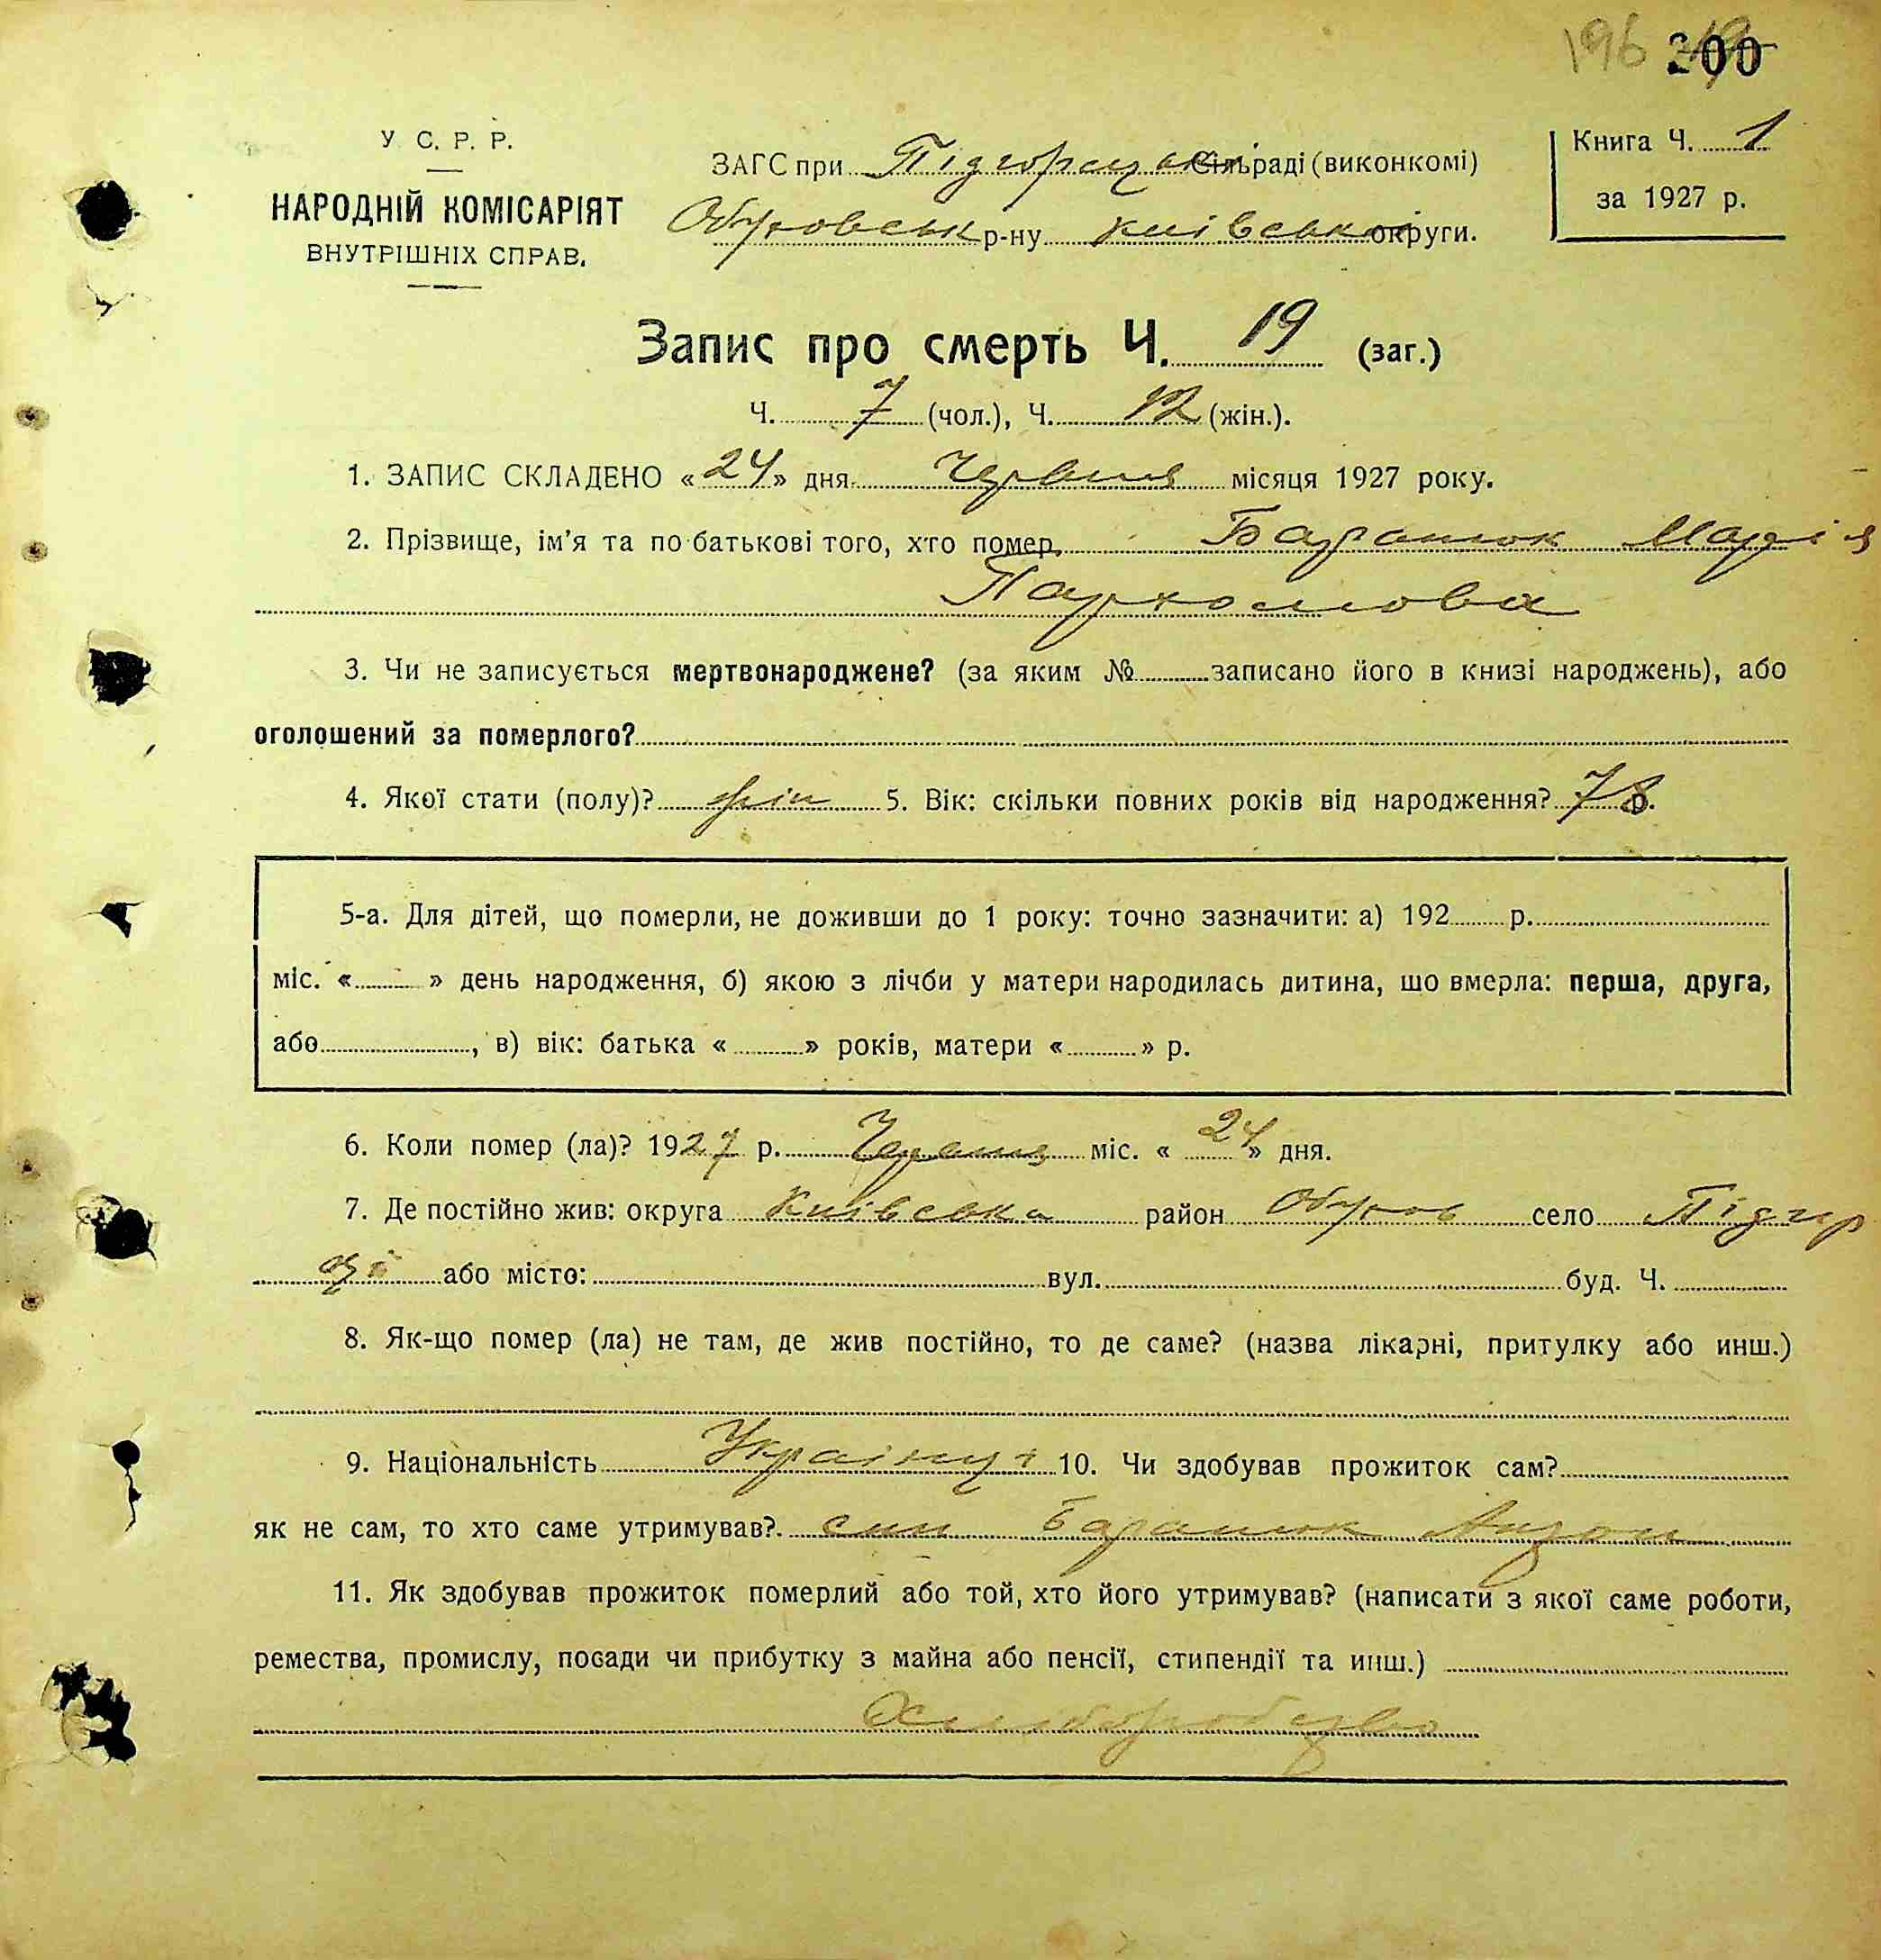 196 300
У С. Р. Р.
НАРОДНІЙ КОМІСАРІЯТ
ВНУТРІШНІХ СПРАВ.
ЗАГС при Підгорецькій Сільраді (виконкомі)
Обуховськ р-ну Київської округи.
Книга Ч. 1
за 1927 р.
Запис про смерть Ч. 19 (заг.)
Ч. 7 (чол.), Ч. 12 (жін.).
1. ЗАПИС СКЛАДЕНО «24» дня Червня місяця 1927 року.
2. Прізвище, ім'я та по батькові того, хто помер. Баранюк Марія
Пархомова
3. Чи не записується мертвонароджене? (за яким № записано його в книзі народжень), або
оголошений за померлого?
4. Якої стати (полу)? жін 5. Вік: скільки повних років від народження? 78 р.
5-а. Для дітей, що померли, не доживши до 1 року: точно зазначити: а) 192 р.
міс. « » день народження, б) якою з лічби у матери народилась дитина, що вмерла: перша, друга,
або , в) вік: батька « » років, матери « » р.
6. Коли помер (ла)? 1927 р. Червня міс. «24» дня.
7. Де постійно жив: округа Київська район Обухов село Підгір
ці або місто: вул. буд. Ч.
8. Як-що помер (ла) не там, де жив постійно, то де саме? (назва лікарні, притулку або инш.)
9. Національність 10. Чи здобував прожиток сам?
як не сам, то хто саме утримував? син Баранюк
11. Як здобував прожиток померлий або той, хто його утримував? (написати з якої саме роботи,
ремества, промислу, посади чи прибутку з майна або пенсії, стипендії та инш.)
Хліборобство